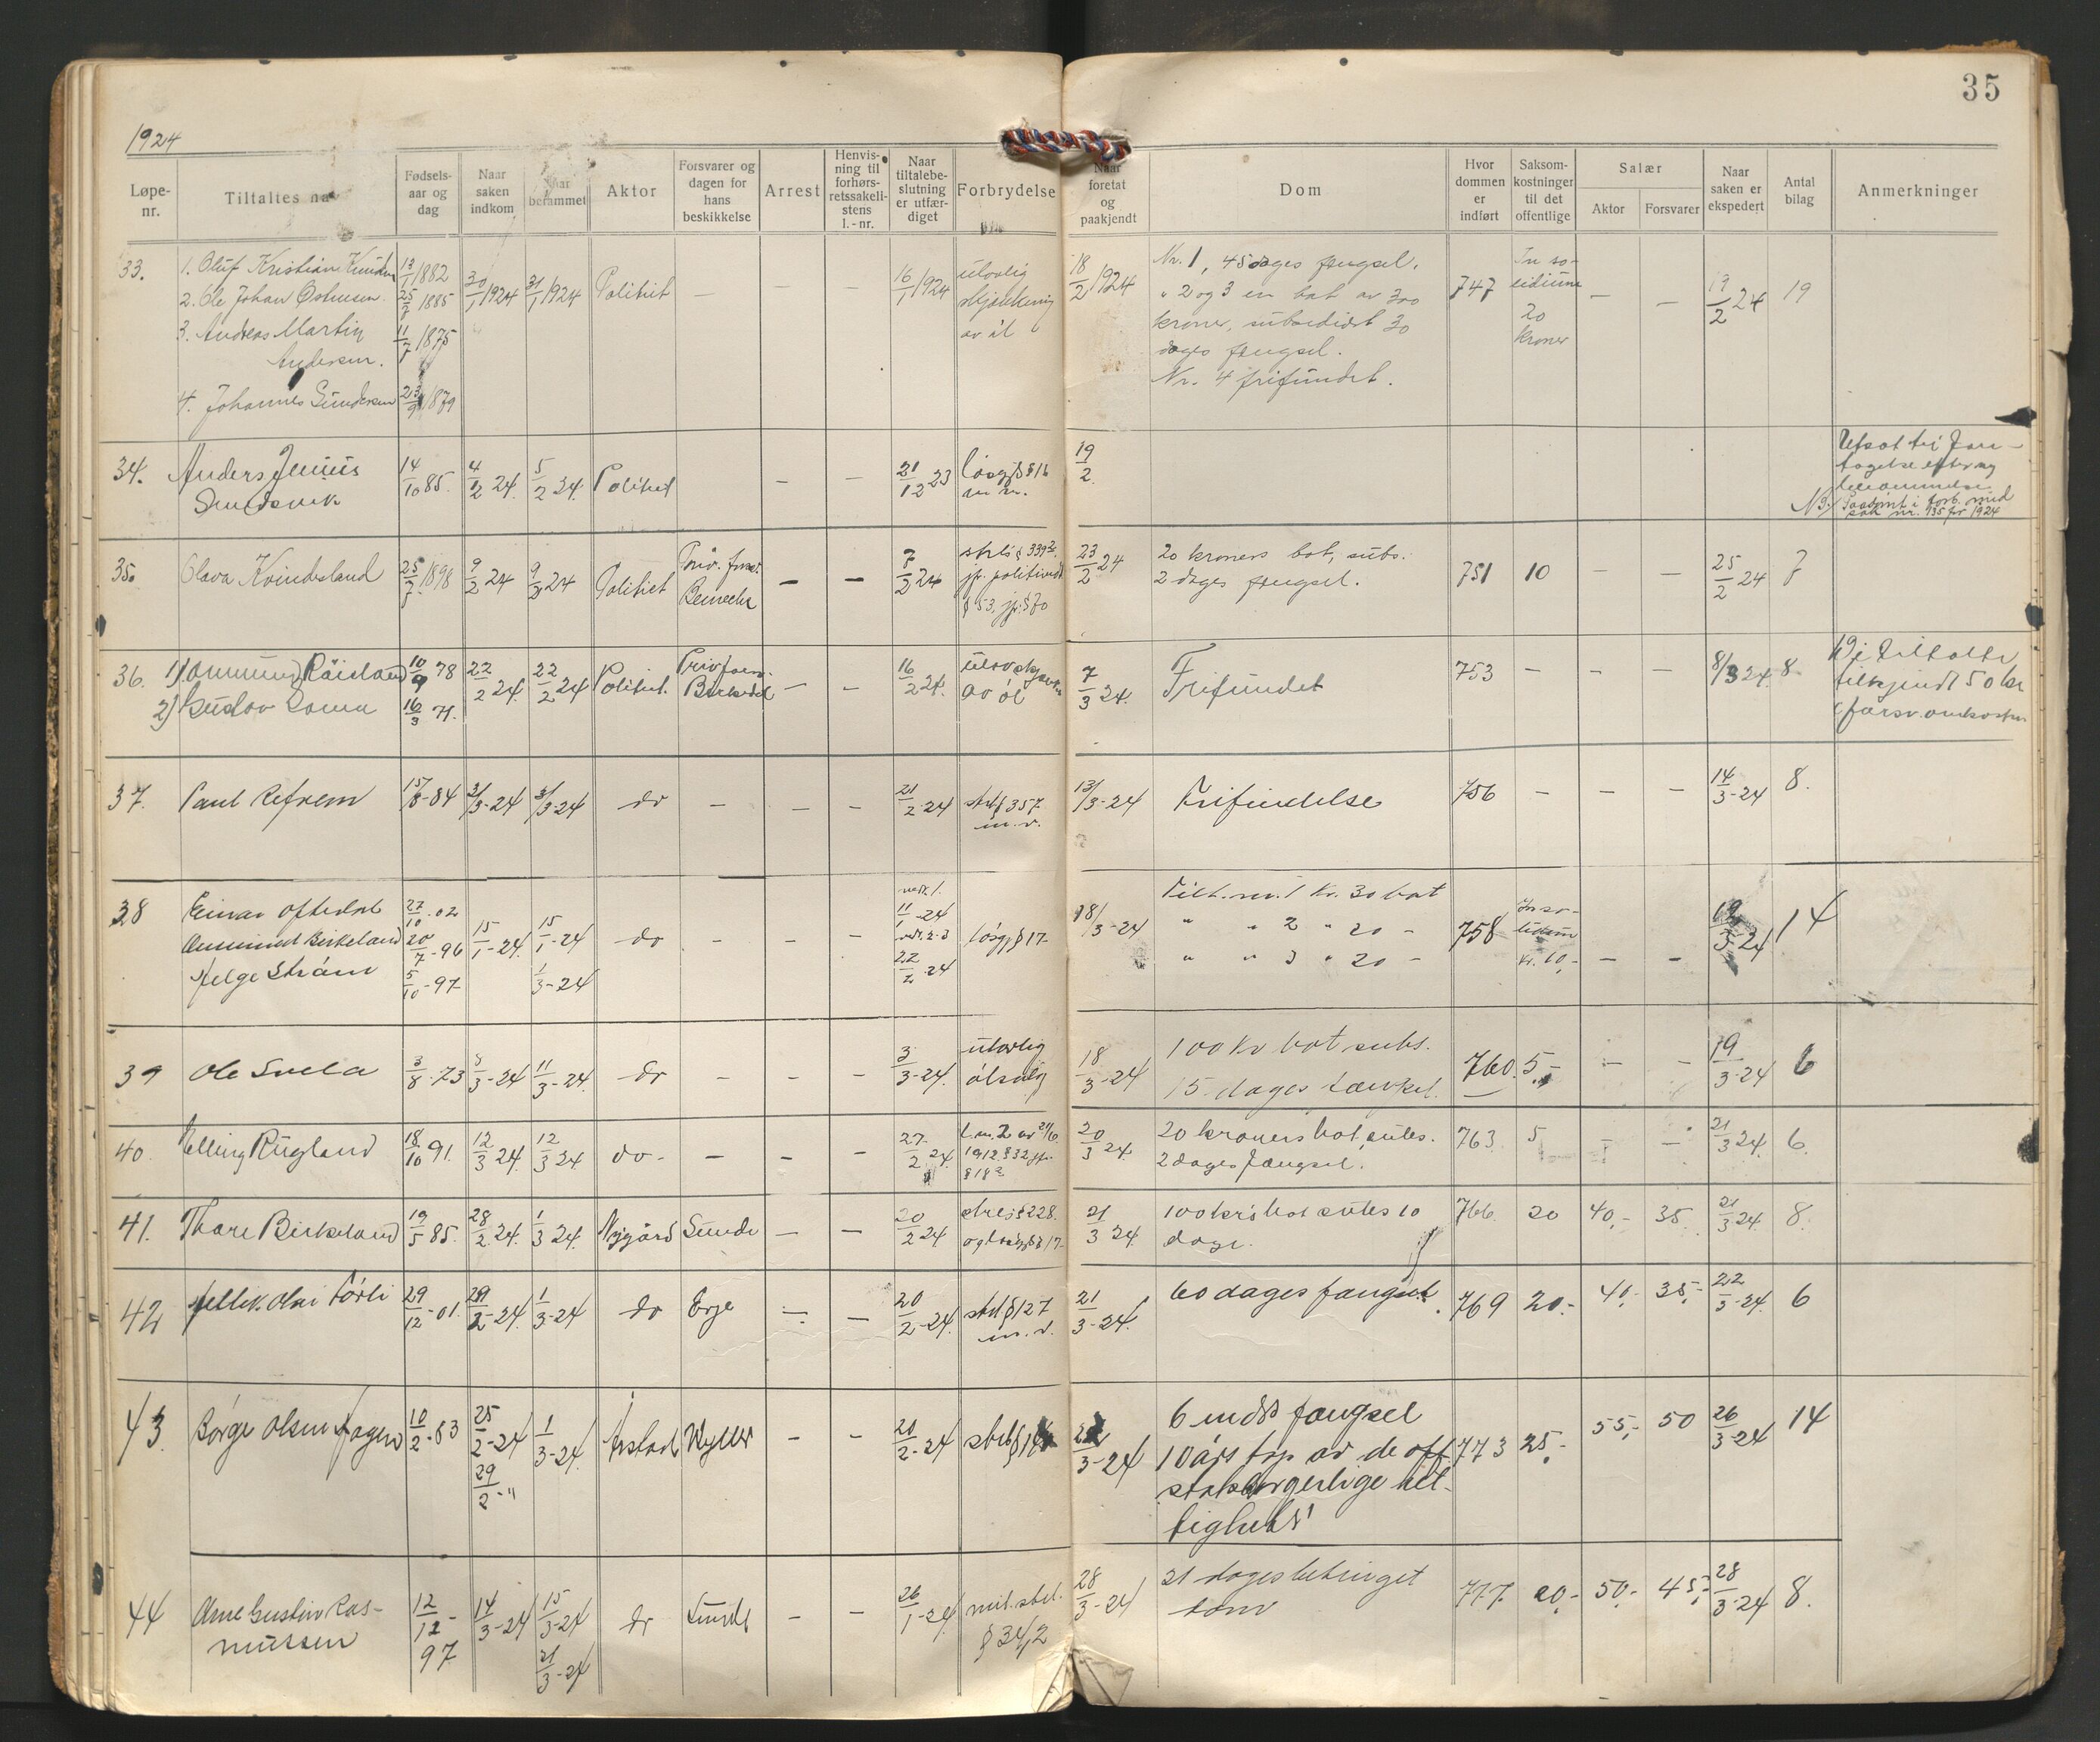 35
1924
Løpe-nr.
Tiltaltes na
Fødsels-aar og dag
Naar saken indkom
Naar berammet
Aktor
Forsvarer og dagen for hans beskikkelse
Arrest
Henvis-ning til forhørs-retssakeli-stens l.-nr.
Naar tiltalebe-slutning er utfær-diget
Forbrydelse
Naar foretat og paakjendt
Dom
Hvor dommen er indført
Saksom-kostninger til det offentlige
Salær
Aktor
Forsvarer
Naar saken er ekspedert
Antal bilag
Anmerkninger
33.
1. Oluf Kristian Knudsen 13/1 1882
2. Ole Johan 25/7 1885
3. Andreas Martin 11/7 1875
Andersen.
4. Johannes Gundersen 23/9 1879
30/1 1924 31/1 1924 Politiet — — — 16/1 1924
ulovlig
skjænkning
av øl
18/2 1924
Nr. 1, 45 dages fengsel.
" 2 og 3 en bot av 300
kroner, subsidiært 30
dages fengsel.
Nr. 4 frifundet.
747
In so-
lidum
20
kroner
— — 19/2 24 19
34. Anders Junius
14/10 85. 4/2 24. 5/2 24. Politiet — — 21/12 23 løsgj. § 16
19/2.
Utsat til
35. Olava Kvindesland 25/7 1898 9/2 24 9/2 24 Politiet Priv.
— — 7/2 24
strl. § 339 2.
jfr. politiv.
§ 53, jfr. § 70
23/2 24 20 kroners bot, subs.
2 dages fengsel.
751 10 — — 25/2 24 7
36. 1) Ommund Røisland 10/9 78
2) Gustav 16/3 71.
22/2 24. 22/2 24 Politiet. — — 16/2 24.
av øl
7/3 24. Frifundet 753 — — — 8/3 24. 8.
tilkjendt 50 kr
37. Paul Refnem 15/8-84 3/3-24 3/3-24 do — — — 21/2 24 strl § 357
13/3-24 Frifindelse 756 — — — 14/3-24 8.
38 Einar Oftedal 27/10-02
Ommund Birkeland 20/7-96
Helge Strøm 5/10-97
15/1-24. 15/1-24
1/3-24
do — — —
11/1-24
22/2 24
løsgj. § 17
18/3-24
Tilt. nr. 1 kr. 30 bot
" " 2 " 20 -
" " 3 " 20 -
758
In so-
lidum
kr. 10,-
— — 19/3-24 14
39 Ole Svela 3/8-73 5/3-24 11/3-24. do — — — 3/3-24.
ulovlig
ølsalg
18/3-24 100 kr bot subs.
15 dages fængsel.
760. 5,- — — 19/3-24 6
40. Elling Rugland 18/10 91. 12/3 24. 12/3 24 do — — — 27/2 24.
l. nr. 2 av 21/6
1912 § 32 jfr.
§ 18
20/3 24. 20 kroners bot, subs.
2 dages fængsel.
763 5 — — 21/3 24. 6.
41. Thore Birkeland 19/5 85. 28/2 24. 1/3 24. Nygård Sunde — — 20/2 24
§ 228.
og løsgj. § 17
21/3 24. 100 kr's bot subs 10
dage.
766. 20 40,- 35. 21/3 24. 8.
42 29/12-01. 29/2-24. 1/3-24 do Erge — — 20/2-24. strl § 127
21/3-24. 60 dages fængsel. 769 20.- 40,- 35,- 22/3-24. 6
43. Børge Olsen 10/2-83 25/2-24
29/2-"
1/3-24. — — 21/2-24
/3-24
6 mdrs fængsel
10 års tap av de off.
statsborgerlige ret-
tigheter
773 25,- 55,- 50 26/3-24 14
44 Arne Gustav Ras-
mussen
12/12-
97
14/3-24 15/3-24
21/3-24
do Sunde — — 26/1-24. mil. strl.
§ 34,2
28/3-24 21 dages betinget
777. 20,- 50,- 45,- 28/3-24 8.